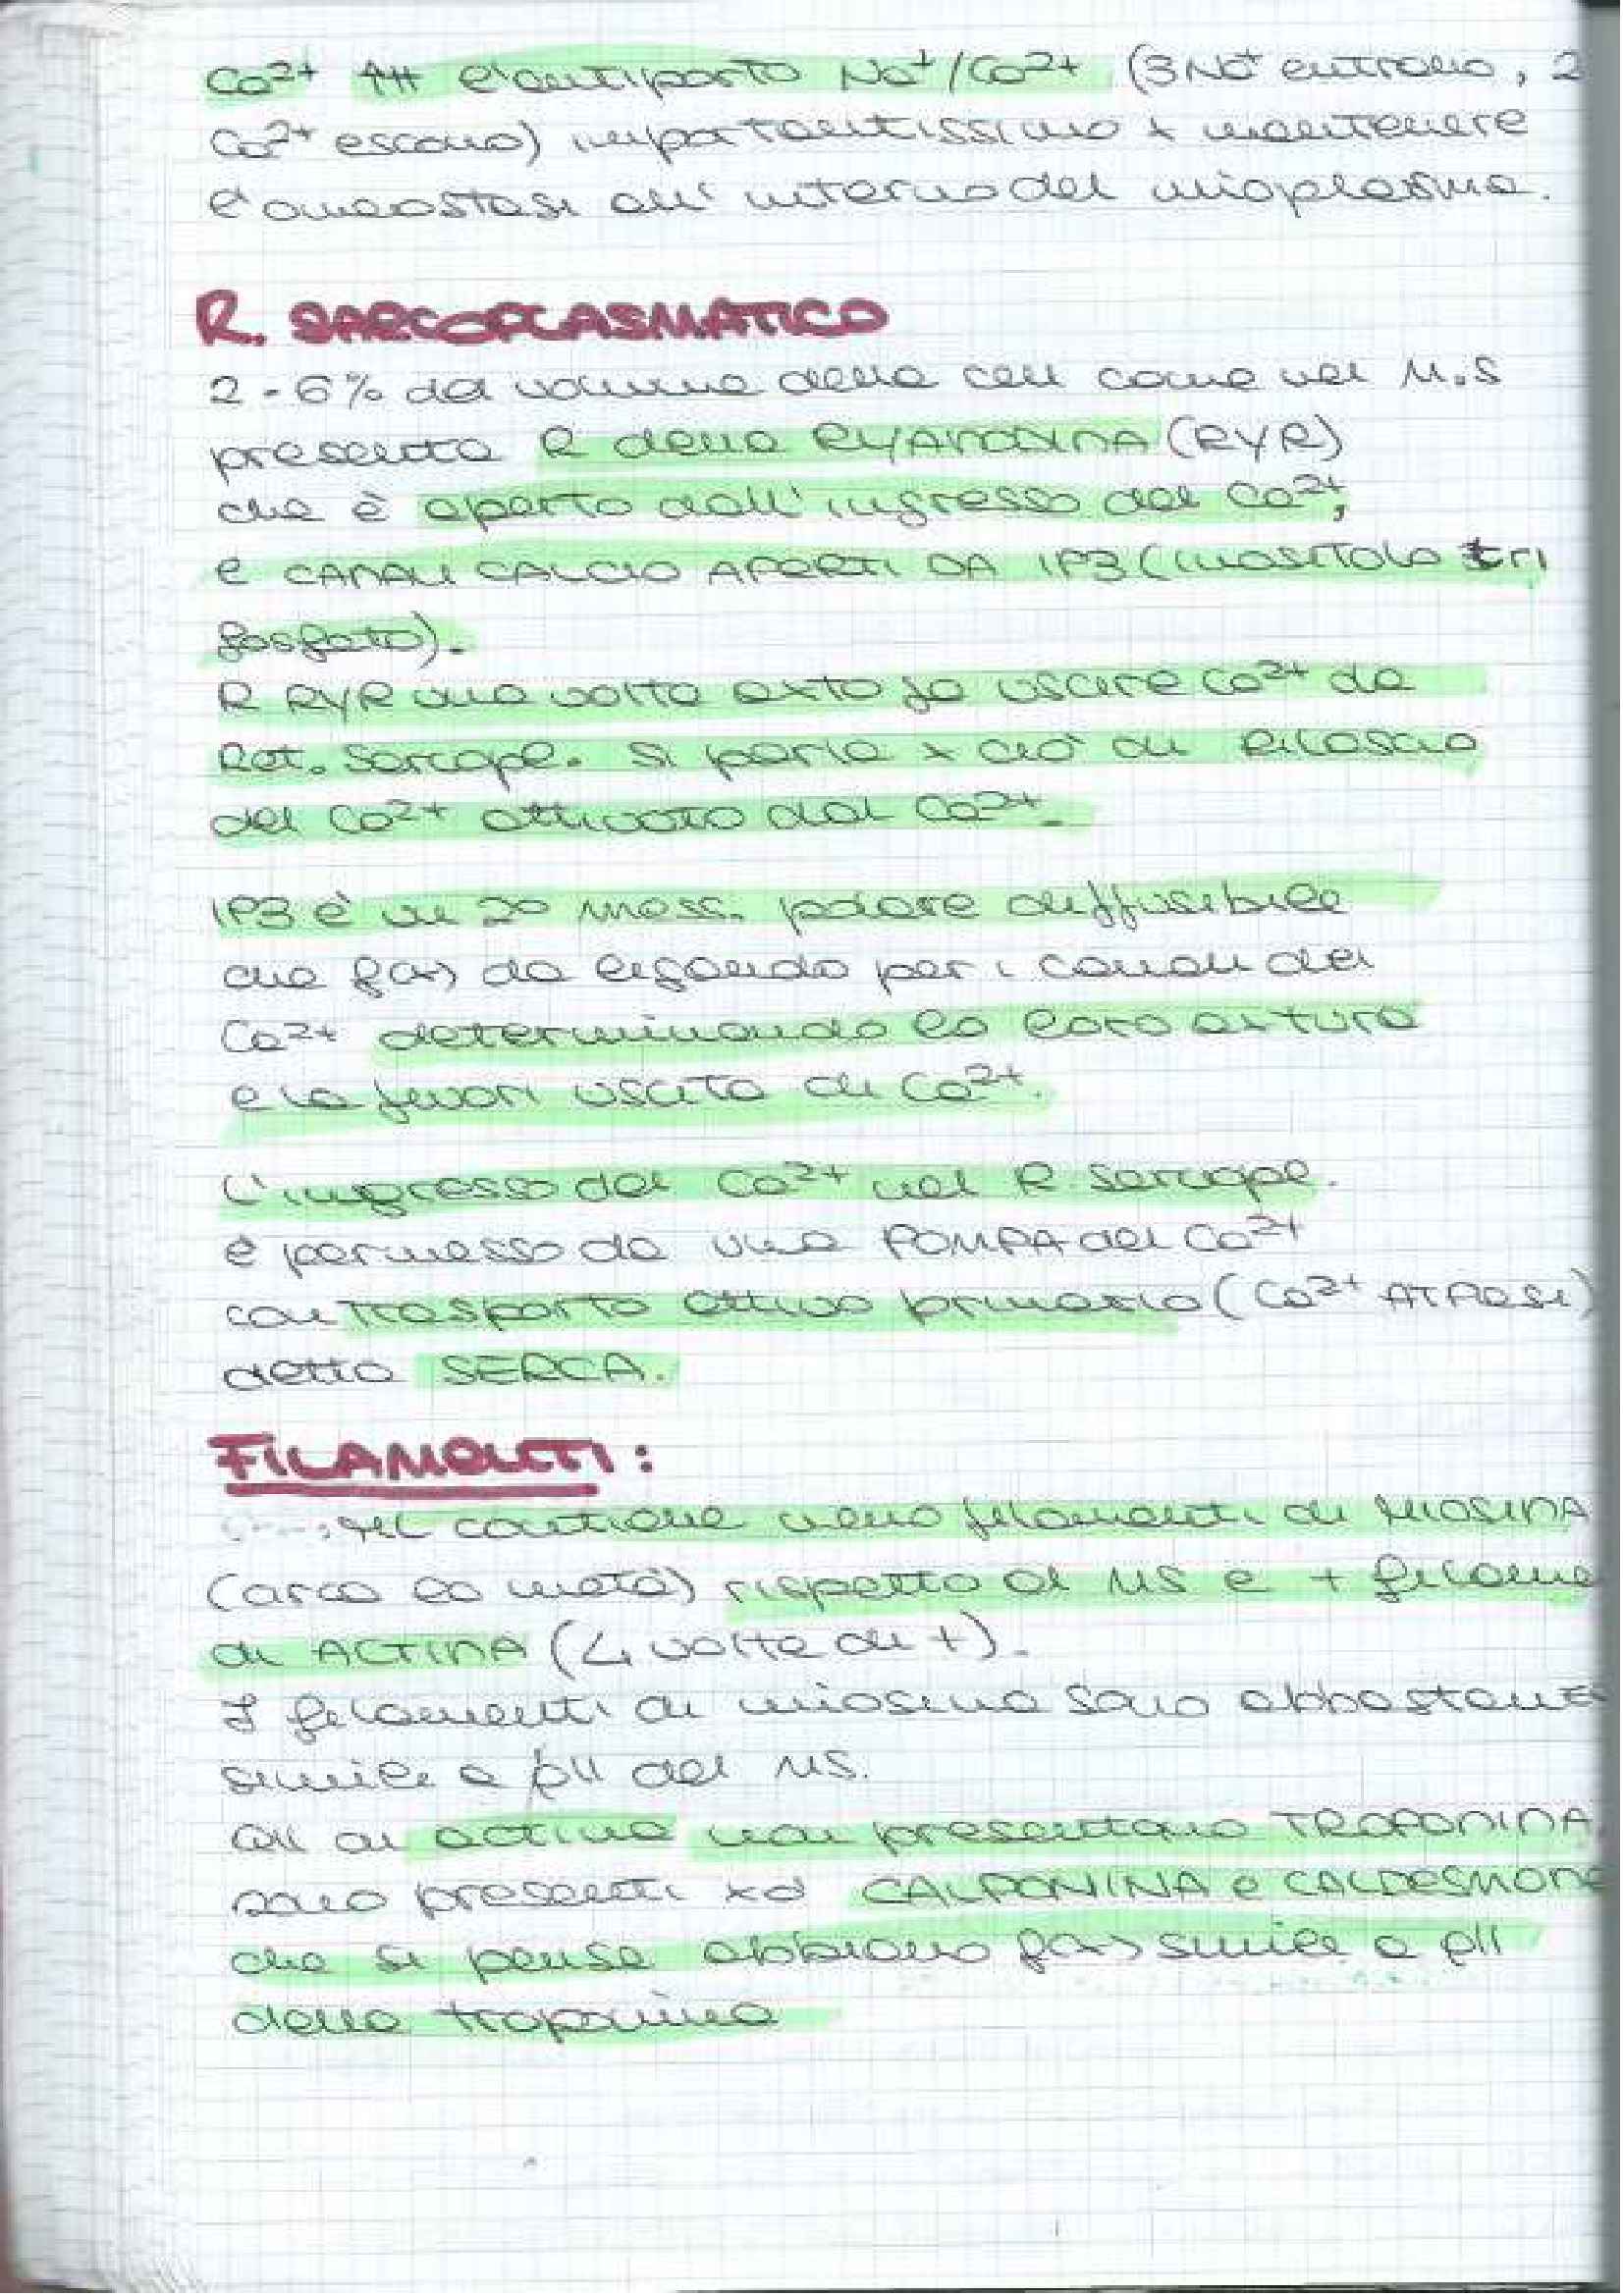 Ca2+ ↑↑ l'antiporto Na+/Ca2+ (3Na+ entrano, 2
Ca2+ escono) importantissimo x mantenere
l'omeostasi all'interno del mioplasma.
R. SARCOPLASMATICO
2-6% del volume della cell come nel M.S
presenta R della RYANODINA (RYR)
che è aperto dall'ingresso del Ca2+,
e CANALI CALCIO APERTI DA IP3 (inositolo tri
fosfato).
R RYR una volta axto fa uscire Ca2+ da
Ret. Sarcopl. Si parla x ciò di rilascio
del Ca2+ attivato dal Ca2+.
IP3 è un 2° mess. polare diffusibile
che f(x) da ligando per i canali del
Ca2+ determinando la loro axtura
e la fuori uscita di Ca2+.
L'ingresso del Ca2+ nel R. Sarcopl.
è permesso da una POMPA del Ca2+
con trasporto attivo primario (Ca2+ ATPasi)
detta SERCA.
FILAMENTI:
contiene meno filamenti di MIOSINA
(circa la metà) rispetto al MS e + filame
di ACTINA (4 volte di +).
I filamenti di miosina sono abbastanza
simili a qll del MS.
Qll di actina non presentano TROPONINA,
sono presenti xò CALPONINA e CALDESMONE
che si pensa abbiano f(x) simile a qll
della troponina